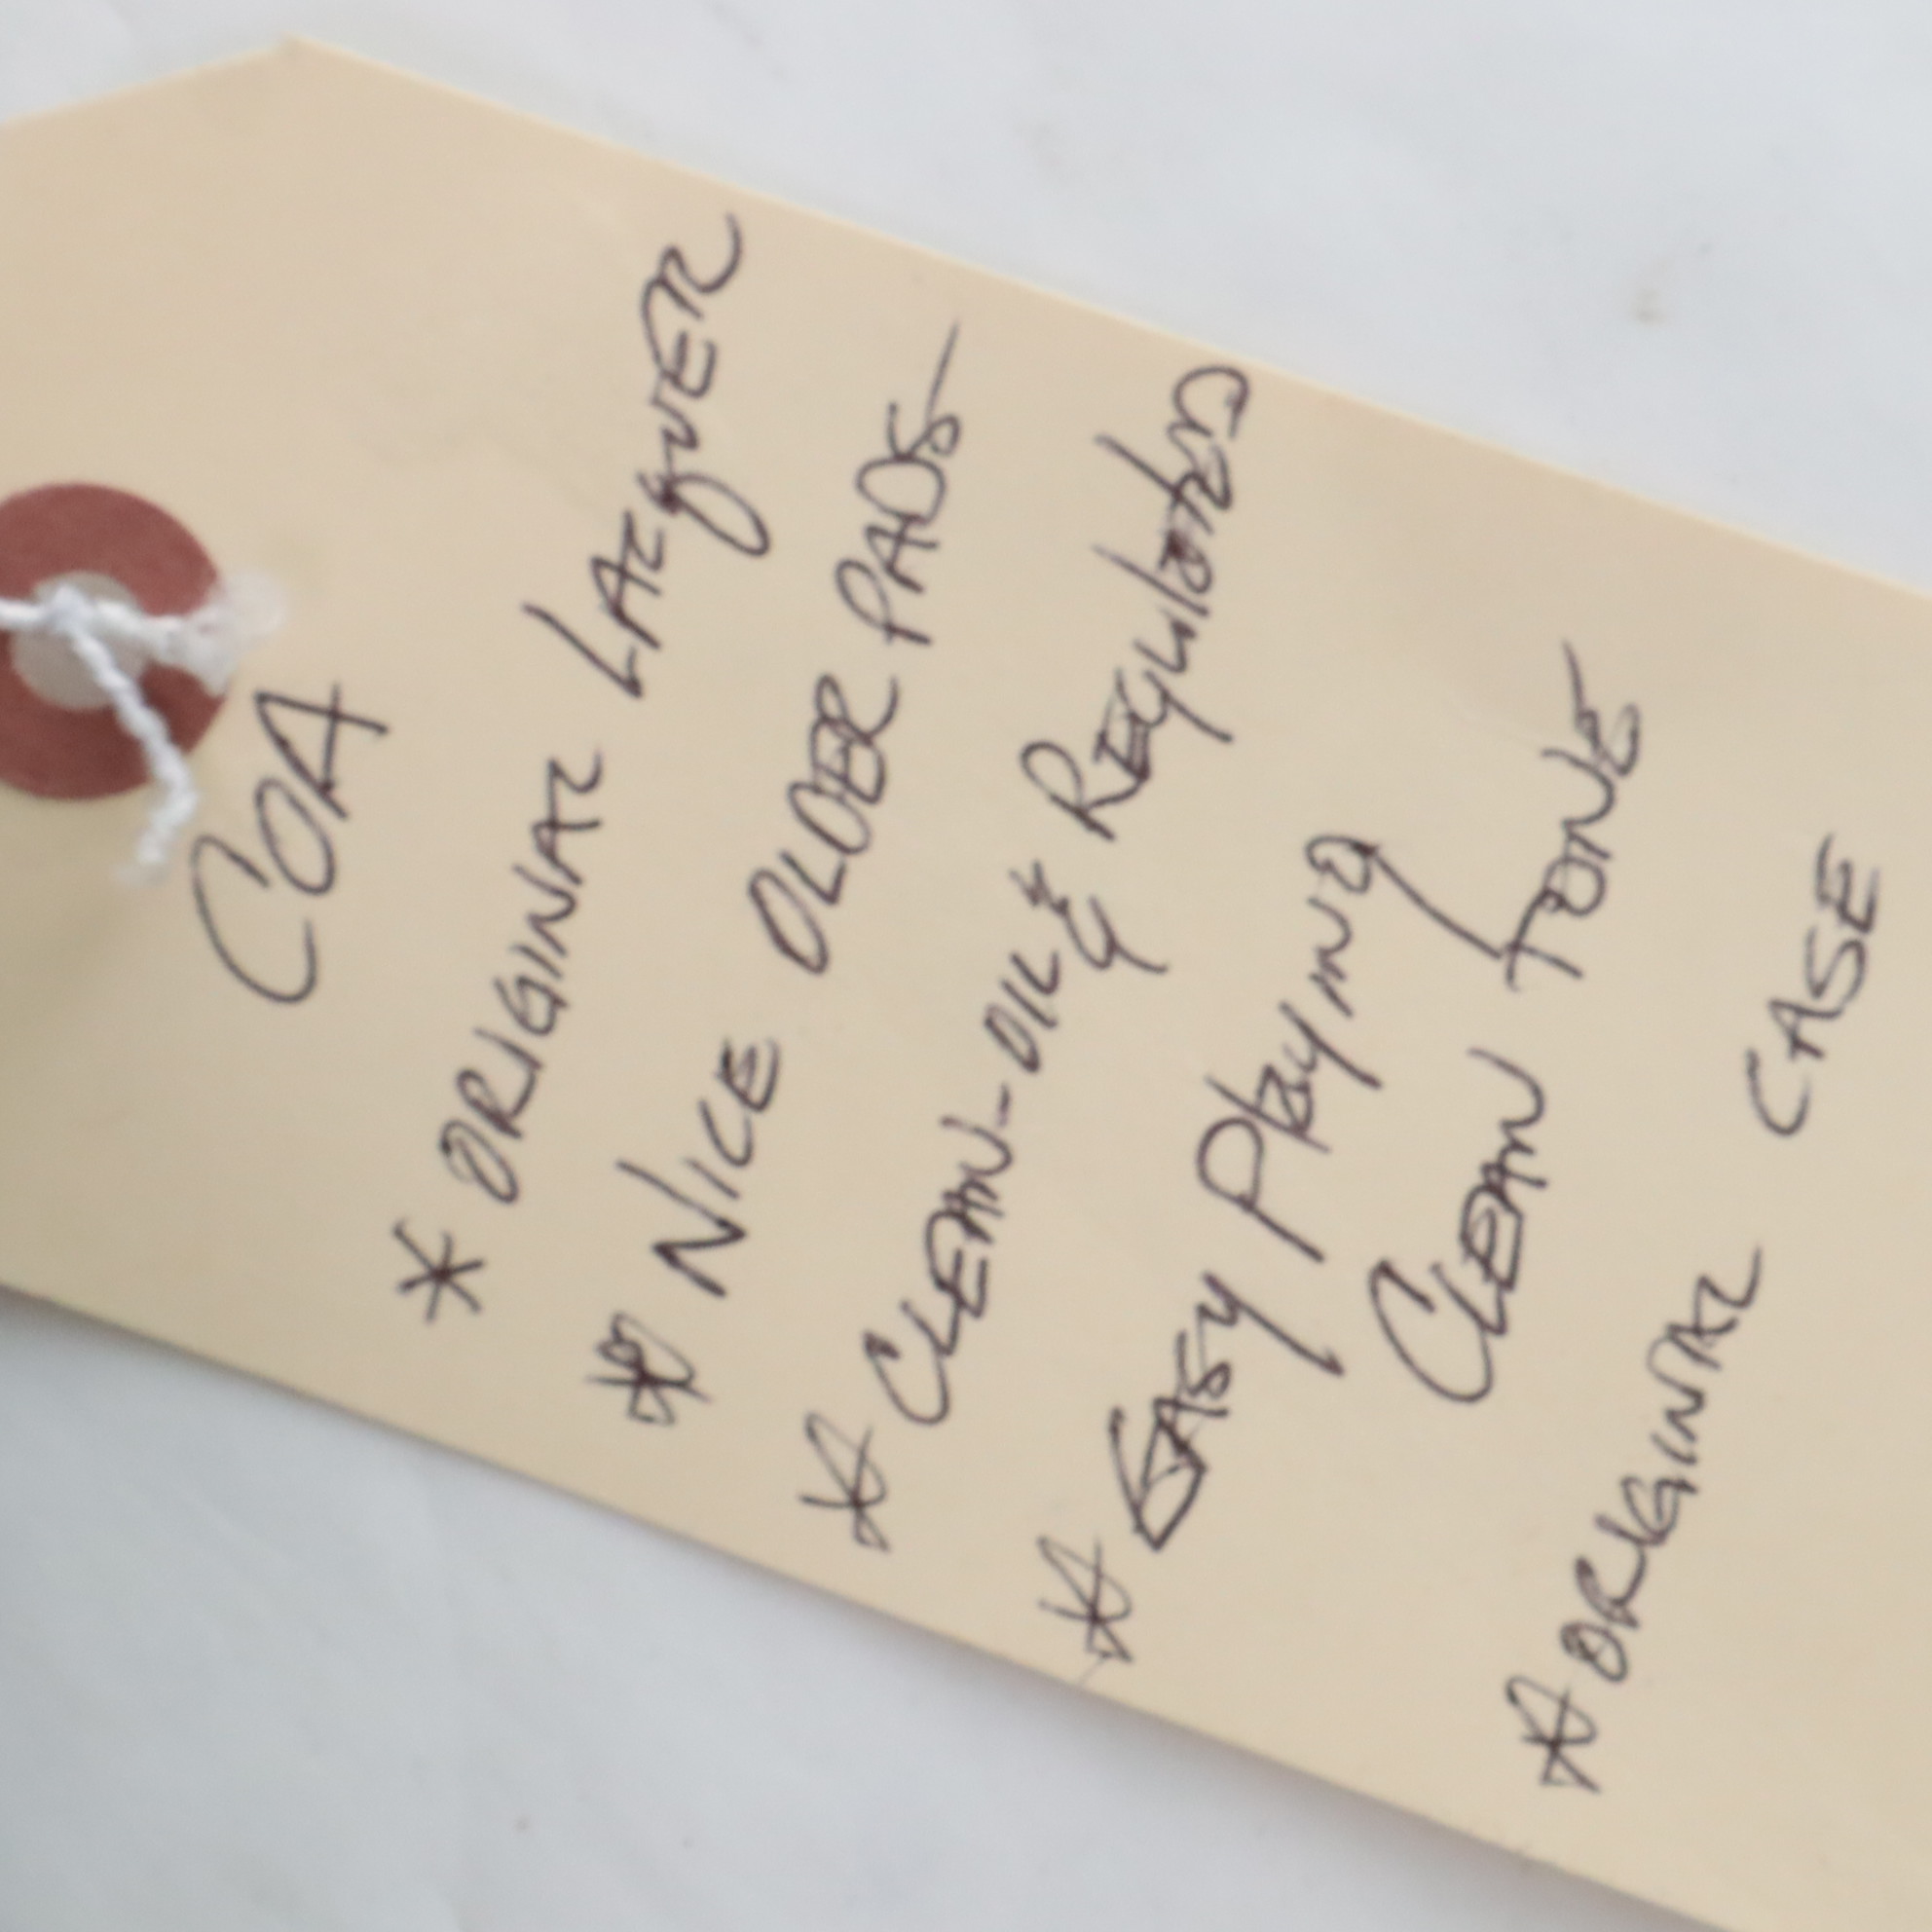 COA
* ORIGINAL LAcquER
* NICE OLDER PADS
* CLEAN-OIL & REgulatED
* EASy PlayINg
CLEAN TONE
* ORIGINAL CASE